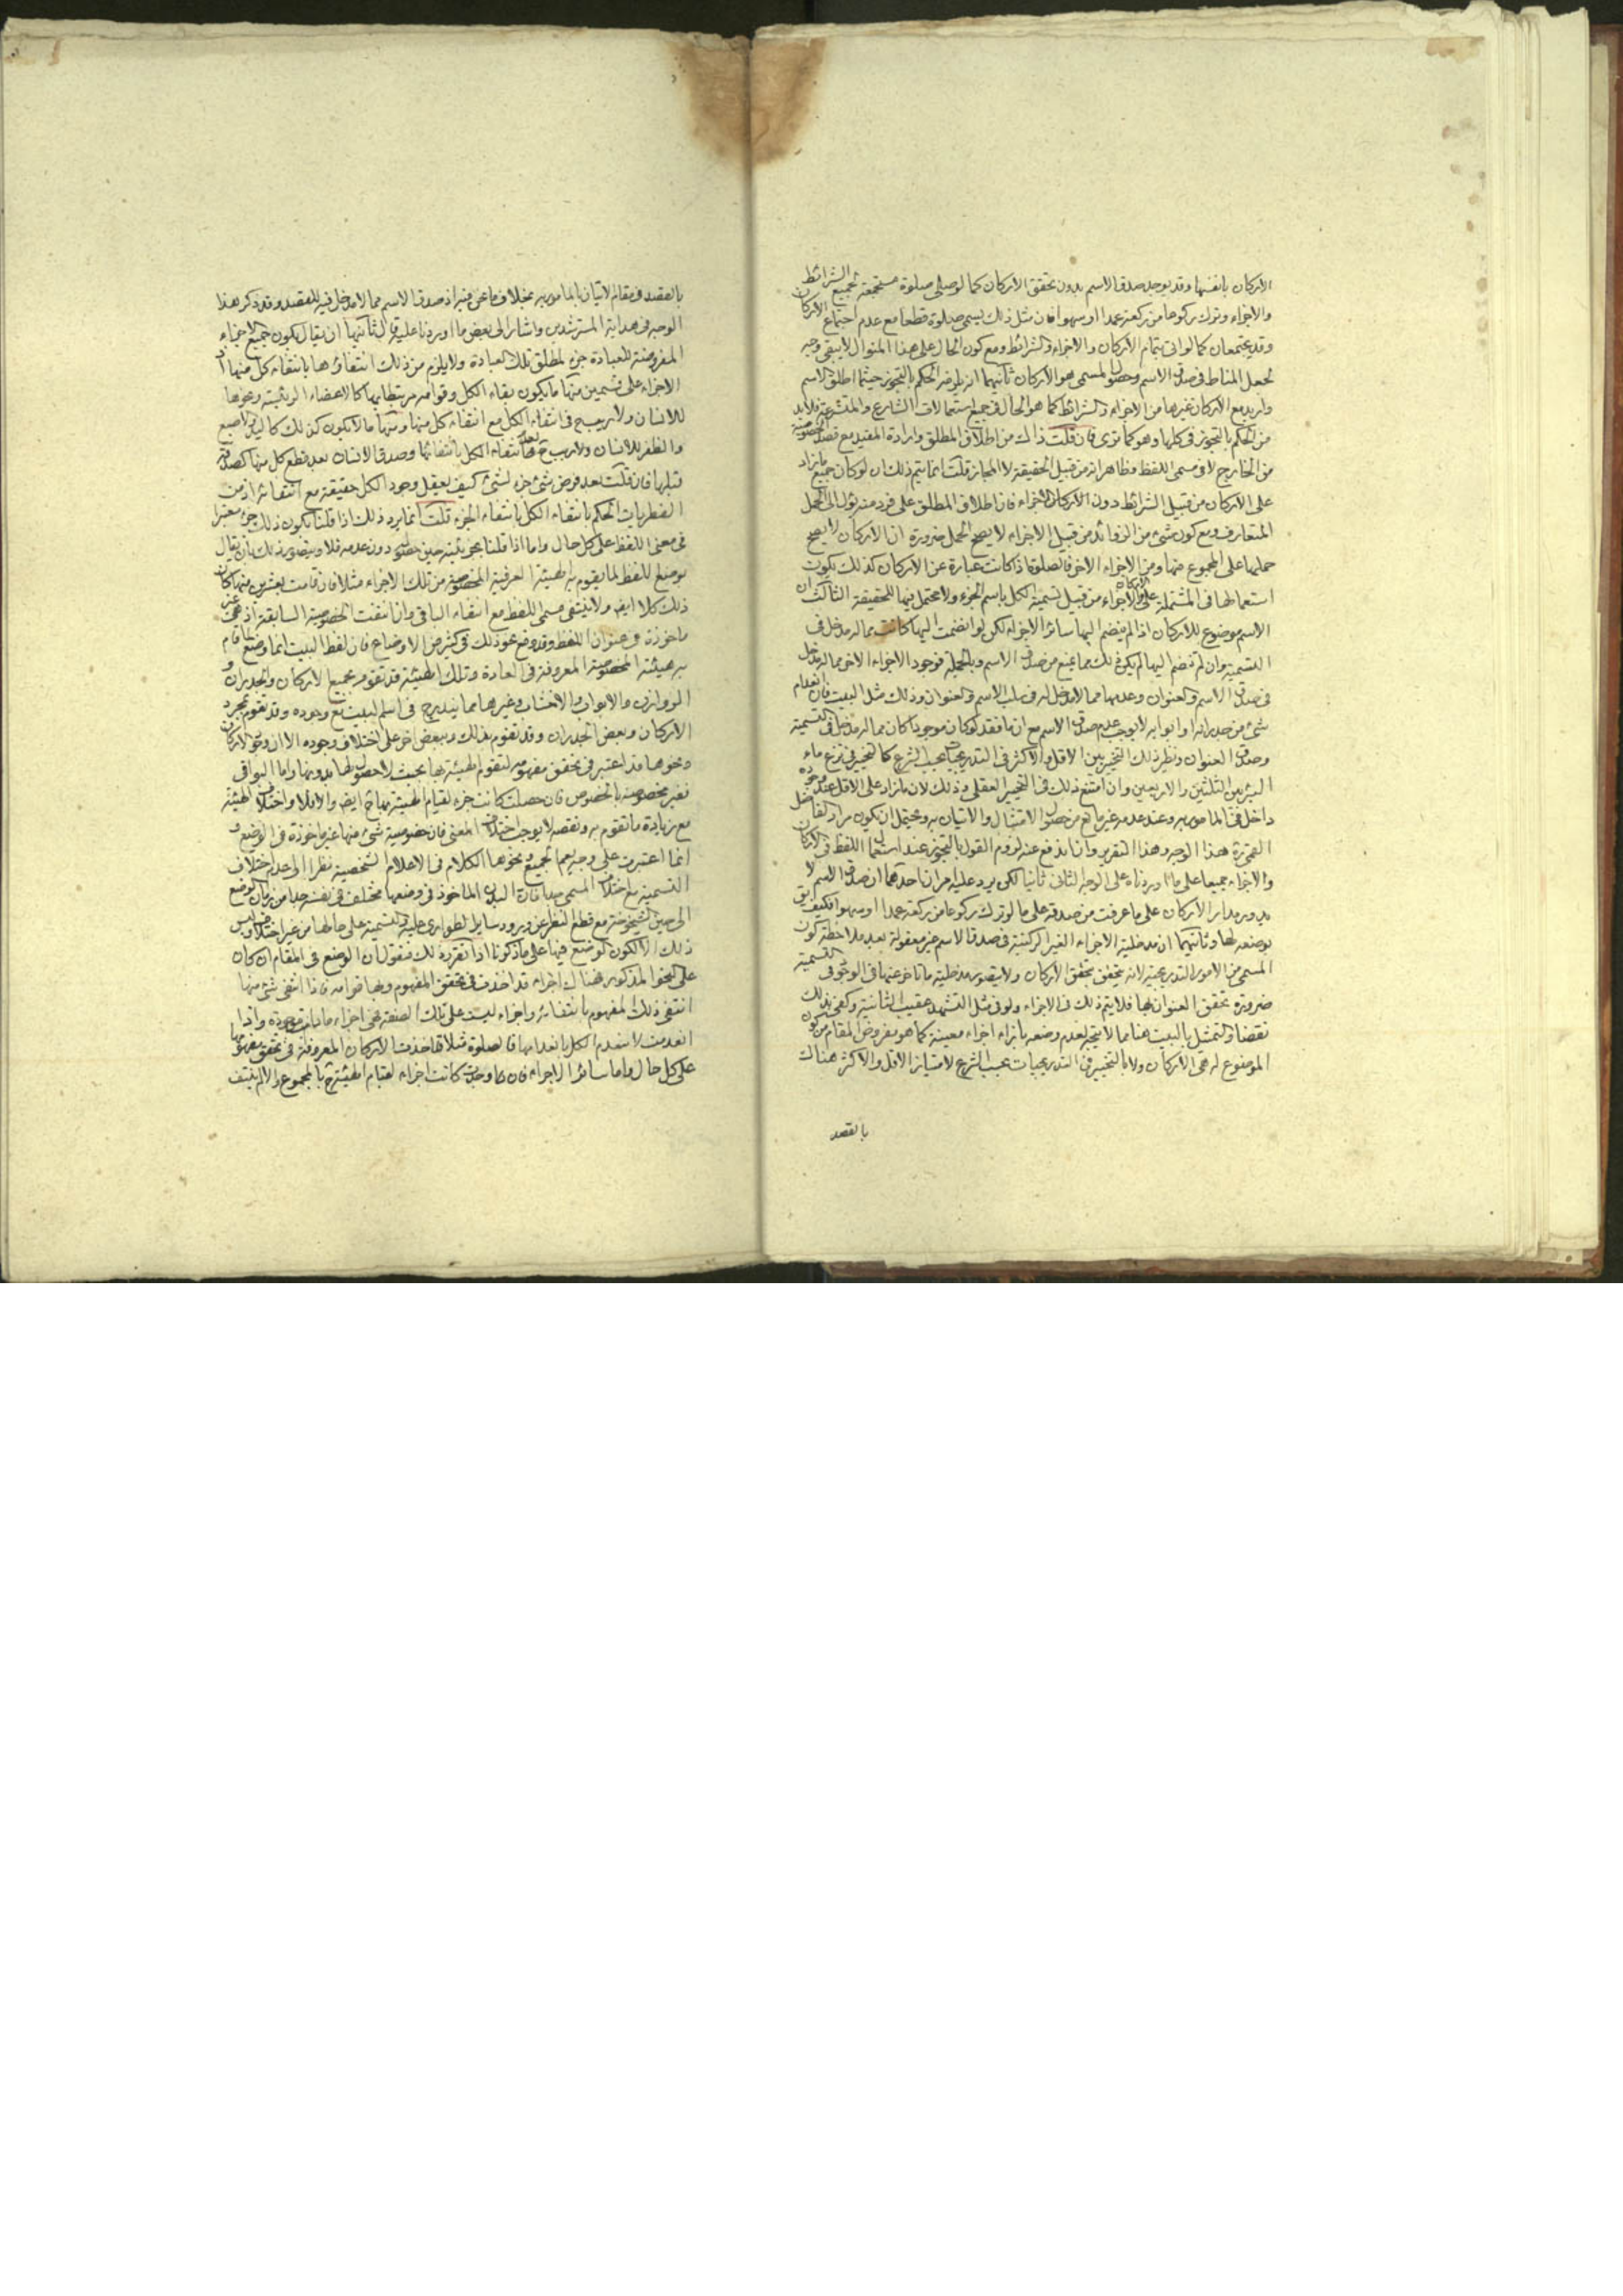 الاركان بانفسها وقد يوجد صدق الاسم بدون تحقق الاركان كما لو صلى صلوة مستجمعة لجميع الشرائط
والاجزاء وترك ركوعا من ركعة عمدا او سهوا فان مثل ذلك يسمى صلوة قطعا مع عدم اجتماع الاركان
وقد يجتمعان كما لو اتى بتمام الاركان والاجزاء والشرائط ومع كون الحال على هذا المنوال لا يبقى وجه
لجعل المناط في صدق الاسم وحصول المسمى هو الاركان ثانيهما انه يلزمه الحكم بالتجوز حيثما اطلق الاسم
واريد مع الاركان غيرها من الاجزاء والشرائط كما هو الحال في جميع استعمالات الشارع والمتشرعة فلا بد
من الحكم بالتجوز في كلها وهو كما ترى فان قلت ذاك من اطلاق المطلق وارادة المقيد مع قصد الخصوصية
من الخارج لا في مسمى اللفظ وظاهر انه من قبيل الحقيقة لا المجاز قلت انما يتم ذلك ان لو كان جميع ما زاد
على الاركان من قبيل الشرائط دون الاركان والاجزاء فان اطلاق المطلق على فرد منه يؤل الى الحمل
المتعارف ومع كون شئ من الزوائد من قبيل الاجزاء لا يصح الحمل ضرورة ان الاركان لا يصح
حملها على المجموع منها ومن الاجزاء الاخر فالصلوة اذا كانت عبارة عن الاركان كذلك يكون
استعمالها في المشتملة على الاركان والاجزاء من قبيل تسمية الكل باسم الجزء ولا يحتمل فيها للحقيقة الثالث ان
الاسم موضوع للاركان اذا لم ينضم اليها سائر الاجزاء لكن لو انضمت اليها كانت مما له مدخل في
التسمية وان لم تنضم اليها لم يكن ذلك مما يمنع من صدق الاسم وبالجملة فوجود الاجزاء الاخر مما له مدخل
في صدق الاسم والعنوان وعدمها مما لا مدخل له في سلب الاسم والعنوان وذلك مثل البيت فان انعدام
شئ من جدرانه او ابوابه لا يوجب عدم صدق الاسم مع ان ما فقد لو كان موجودا كان مما له مدخل في التسمية
وصدق العنوان ونظير ذلك التخيير بين الاقل والاكثر في التدريجيات بحسب الشرع كالتخيير في نزح ماء
البئر بين الثلثين والاربعين وان امتنع ذلك في التخيير العقلي وذلك لان ما زاد على الاقل عند وجوده
داخل في المامور به وعند عدمه غير مانع من حصول الامتثال والاتيان به ويحتمل ان يكون مراد الفاضل
القمي ره هذا الوجه وهذا التقرير وان اندفع عنه لزوم القول بالتجوز عند استعمال اللفظ في الاركان
والاجزاء جميعا على ما اوردناه على الوجه الثاني ثانيا لكن يرد عليه امران احدهما ان صدق الاسم لا
يدور مدار الاركان على ما عرفت من صدقه على ما لو ترك ركوعا من ركعة عمدا او سهوا فكيف يق
بوضعه لها وثانيهما ان مدخلية الاجزاء الغير الركنية في صدق الاسم غير معقولة بعد ملاحظة كون
المسمى من الامور التدريجية لانه يتحقق بتحقق الاركان ولا يتصور مدخلية ما تاخر عنها في الوجود في التسمية
ضرورة تحقق العنوان بها فلا يتم ذلك في الاجزاء ولو في مثل التشهد عقيب الثانية وكفى بذلك
نقضا والتمثل بالبيت هنا مما لا يتجه لعدم وضعه بازاء اجزاء معينة كما هو مفروض المقام من كون
الموضوع له هي الاركان ولا بالتخيير في التدريجيات بحسب الشرع لامتياز الاقل والاكثر هناك
بالقصد
بالقصد في مقام الاتيان بالمامور به بخلاف ما نحن فيه اذ صدق الاسم مما لا مدخل فيه للقصد وقد ذكر هذا
الوجه في هداية المسترشدين واشار الى بعض ما اوردنا عليه قال ثانيها ان يقال بكون جميع الاجزاء
المفروضة للعبادة جزء لمطلق تلك العبادة ولا يلزم من ذلك انتفاؤها بانتفاء كل منها اذ
الاجزاء على قسمين منها ما يكون بقاء الكل وقوامه مرتبطا بها كالاعضاء الرئيسة ونحوها
للانسان ولا ريب ح في انتفاء الكل مع انتفاء كل منها ومنها ما لا يكون كذلك كاليد والاصبع
والظفر للانسان ولا ريب ح في عدم انتفاء الكل بانتفائها وصدق الانسان بعد قطع كل منها كصدقه
قبلها فان قلت بعد فرض شئ جزء لشئ كيف يعقل وجود الكل حقيقة مع انتفائه اذ من
الفطريات الحكم بانتفاء الكل بانتفاء الجزء قلت انما يرد ذلك اذا قلنا بكون ذلك جزء معتبرا
في معنى اللفظ على كل حال واما اذا قلنا بجزئيته حين حصوله دون عدمه فلا ويتصور ذلك بان يقال
بوضع اللفظ لما يقوم به الهيئة العرفية المخصوصة من تلك الاجزاء مثلا فان قامت بعشرين منها كان
ذلك كلا ايض ولا ينتفى مسمى اللفظ مع انتفاء الباقي وان انتفت الخصوصية السابقة اذ هي غير
ماخوذة في عنوان اللفظ وقد وقع نحو ذلك في كثير من الاوضاع فان لفظ البيت انما وضع لما قام
به هيئته المخصوصة المعروفة في العادة وتلك الهيئة قد تقوم بجميع الاركان والجدران و
الروازن والابواب والاخشاب وغيرها مما يندرج في اسم البيت مع وجوده وقد تقوم بمجرد
الاركان وبعض الجدران وقد تقوم بذلك وببعض اخر على اختلاف وجوده الا ان وجود الاركان
ونحوها قد اعتبر في تحقق مفهومه لتقوم الهيئة بها بحيث لا حصول لها بدونها واما البواقي
فغير مخصوصة بالخصوص فان حصلت كانت جزء لقيام الهيئة بها ح ايض والا فلا واختلاف الهيئة
مع زيادة ما تقوم به ونقصه لا يوجب اختلاف المعنى فان خصوصية شئ منها غير ماخوذة في الوضع و
انما اعتبرت على وجه يعم الجميع ونحوها الكلام في الاعلام الشخصية نظرا الى عدم اختلاف
التسمية مع اختلاف المسمى جدا فان البدن الماخوذ في وضعها مختلف في نفسه جدا من زمان الوضع
الى حين الشيخوخة مع قطع النظر عن ورود ساير الطوارى عليه والتسمية على حالها من غير اختلاف وليس
ذلك الا لكون الوضع فيها على ما ذكرنا اذا تقرر ذلك فنقول ان الوضع في المقام ان كان
على النحو المذكور هناك اجزاء قد اخذت في تحقق المفهوم وبها قوامه فاذا انتفى شئ منها
انتفى ذلك المفهوم بانتفائه واجزاء ليست على تلك الصفة فهى اجزاء ما دامت موجودة واذا
انعدمت لا ينعدم الكل بانعدامها فالصلوة مثلا قد اخذت الاركان المعروفة في تحقق مفهومها
على كل حال واما سائر الاجزاء فان وجدت كانت اجزاء لقيام الهيئة ح بالمجموع والا لم ينتف